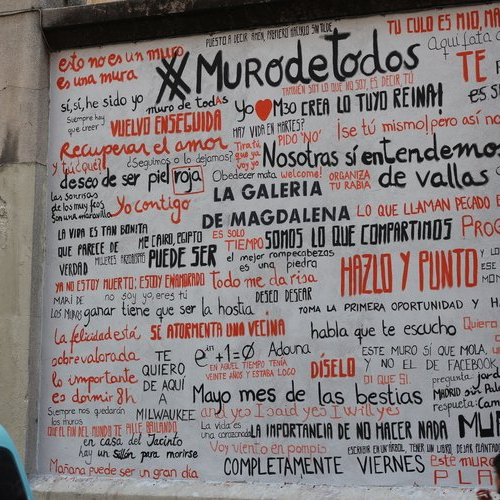 PUESTO A DECIR AMEN, PREMIERO
TU CULO ES MÍO,
esto no es un muro
es una mura
#MUROdetodos
Aquí
TAMBIÉN SOY LO QUE NO SOY, ES DECIR, TÚ
TE
sí, sí, he sido yo
muro de todAs
Yo ♥ M30
CREA LO TUYO REINA!
Siempre hay
que creer
VUELVO ENSEGUIDA
HAY VIDA EN MARTES?
PIDO 'NO'
¡se tú mismo! pero así no
Recuperar el amor
y tú ¿qué?
¿Seguimos o lo dejamos?
Tira tú
que ya
voy yo
Nosotras sí entendemos
de vallas
deseo de ser piel roja
Obedecer mata
welcome!
ORGANIZA
TU RABIA
las sonrisas
de los muy feos
son una maravilla
Yo contigo
LA GALERIA
DE MAGDALENA
LO QUE LLAMAN PECADO
LA VIDA ES TAN BONITA
QUE PARECE DE
VERDAD
ME CAIRO, EGIPTO
MUJERES
PUEDE SER
ES SOLO
TIEMPO
SOMOS LO QUE COMPARTIMOS
el mejor rompecabezas
es una piedra
HAZLO Y PUNTO
YA NO ESTOY MUERTO: ESTOY ENAMORADO
Todo me da risa
MARI DE
LOS MUROS
no soy yo, eres tú
DESEO DESEAR
ganar tiene que ser la hostia
TOMA LA PRIMERA OPORTUNIDAD Y
La felicidad está
sobrevalorada
SE ATORMENTA UNA VECINA
habla que te escucho
lo importante
es dormir 8h
TE
QUIERO
DE AQUÍ
A
MILWAUKEE
e^iπ+1=0
Adouna
EN AQUEL TIEMPO TENÍA
VEINTE AÑOS Y ESTABA LOCO
DÍSELO
DI QUE SI.
ESTE MURO SÍ QUE MOLA,
Y NO EL DE FACEBOOK
Mayo mes de las bestias
pregunta:
MADRID
respuesta:
Siempre nos quedarán
los muros
and yes I said yes I will yes
QUE EL FIN DEL MUNDO TE PILLE BAILANDO
La vida es
una corazonada
LA IMPORTANCIA DE NO HACER NADA
en casa del Jacinto
hay un sillón para morirse
Voy viento en pompis
ESCRIBIR EN UN ÁRBOL, TENER UN LIBRO, DEJAR
Mañana puede ser un gran día
COMPLETAMENTE VIERNES
este muro